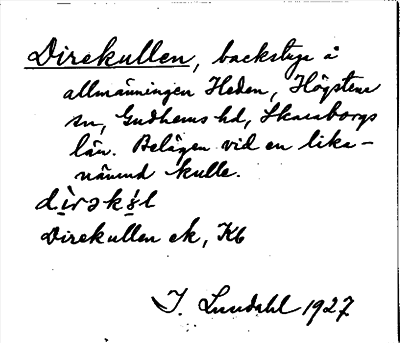 Direkullen, backstuga å
allmänningen Heden, Högstena
sn, Gudhems hd, Skaraborgs
län. Belägen vid en lika-
nämnd kulle.
dìrəkl
Direkullen ek, Kb
I. Lundahl 1927